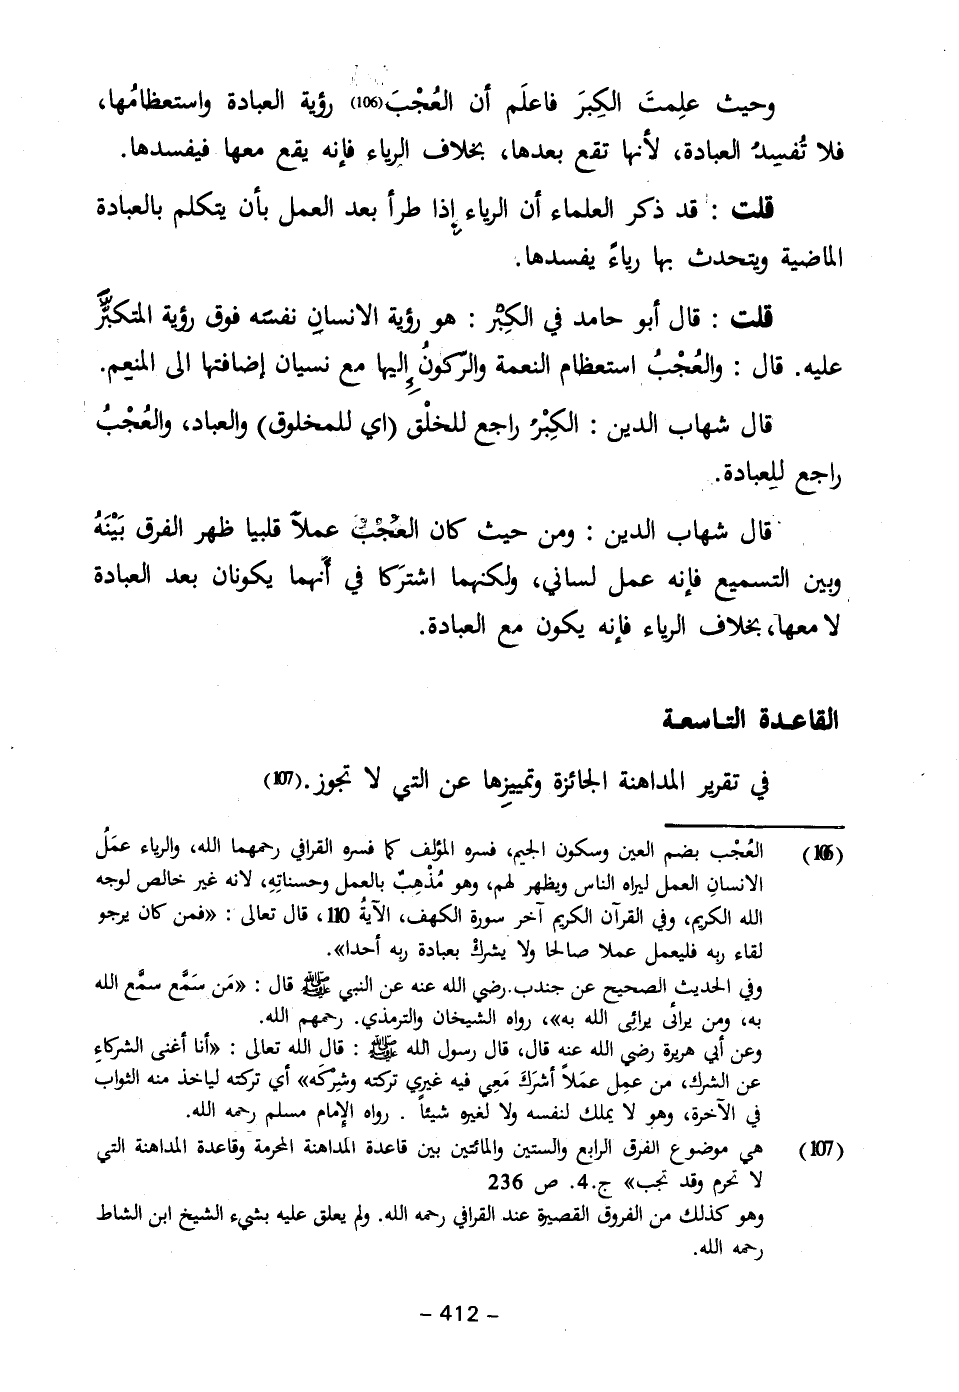 وحيث علِمتَ الكِبرَ فاعلَم أن العُجْبَ(106) رؤية العبادة واستعظامُها،
فلا تُفسِدُ العبادة، لأنها تقع بعدها، بخلاف الرياء فإنه يقع معها فيفسدها.
قلت : قد ذكر العلماء أن الرياء إذا طرأ بعد العمل بأن يتكلم بالعبادة
الماضية ويتحدث بها رياءً يفسدها.
قلت : قال أبو حامد في الكِبْر : هو رؤية الانسانِ نفسَه فوق رؤية المتكبَّرِ
عليه. قال : والعُجْبُ استعظام النعمة والرّكونُ إليها مع نسيان إضافتها الى المنعِم.
قال شهاب الدين : الكِبْرُ راجع للخلْق (اي للمخلوق) والعباد، والعُجْبُ
راجع للعبادة.
قال شهاب الدين : ومن حيث كان العُجْبُ عملاً قلبيا ظهر الفرق بَيْنَهُ
وبين التسميع فإنه عمل لساني، ولكنهما اشترَكا في أنهما يكونان بعد العبادة
لا معها، بخلاف الرياء فإنه يكون مع العبادة.
القاعدة التاسعة
في تقرير المداهنة الجائزة وتمييزِها عن التي لا تجوز.(107)
(106) العُجْب بضم العين وسكون الجيم، فسره المؤلف كما فسره القرافي رحمهما الله، والرياء عمَلُ
الانسانِ العمل ليراه الناس ويظهر لهم، وهو مُذْهِبٌ بالعمل وحسناتِهِ، لانه غير خالص لوجه
الله الكريم، وفي القرآن الكريم آخر سورة الكهف، الآيةُ 110، قال تعالى : «فمن كان يرجو
لقاء ربه فليعمل عملا صالحا ولا يشركْ بعبادة ربه أحدا».
وفي الحديث الصحيح عن جندب.رضي الله عنه عن النبي ﷺ قال : «مَن سَمَّع سمَّع الله
به، ومن يرائى يرائِى الله به»، رواه الشيخان والترمذي. رحمهم الله.
وعن أبي هريرة رضي الله عنه قال، قال رسول الله ﷺ : قال الله تعالى : «أنا أغنى الشركاءِ
عن الشرك، من عمِل عمَلاً أشرَكَ مَعِي فيه غيري تركته وشِرْكَه» أي تركته لياخذ منه الثواب
في الآخرة، وهو لا يملك لنفسه ولا لغيره شيئاً . رواه الإمام مسلم رحمه الله.
(107) هي موضوع الفرق الرابع والستين والمائتين بين قاعدة المداهنة المحرمة وقاعدة المداهنة التي
لا تحرم وقد تجب» ج.4. ص 236
وهو كذلك من الفروق القصيرة عند القرافي رحمه الله. ولم يعلق عليه بشيء الشيخ ابن الشاط
رحمه الله.
- 412 -